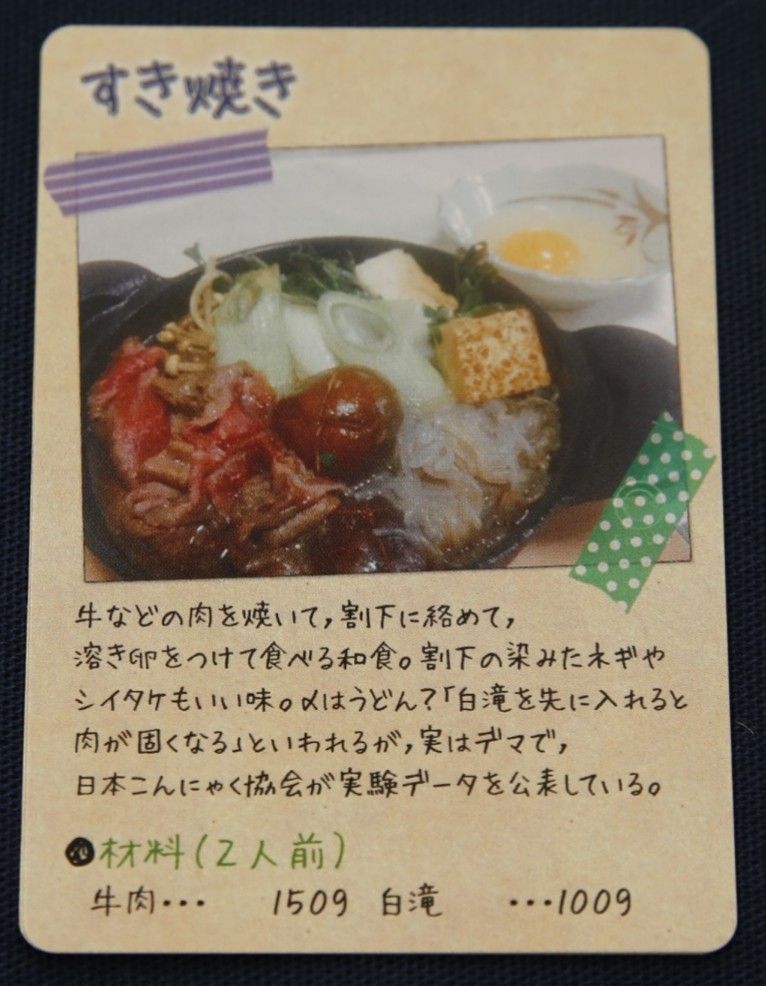 すき焼き
牛などの肉を焼いて,割下に絡めて,
溶き卵をつけて食べる和食。割下の染みたネギや
シイタケもいい味。〆はうどん?「白滝を先に入れると
肉が固くなる」といわれるが,実はデマで,
日本こんにゃく協会が実験データを公表している。
●材料(2人前)
牛肉… 150g 白滝 …100g